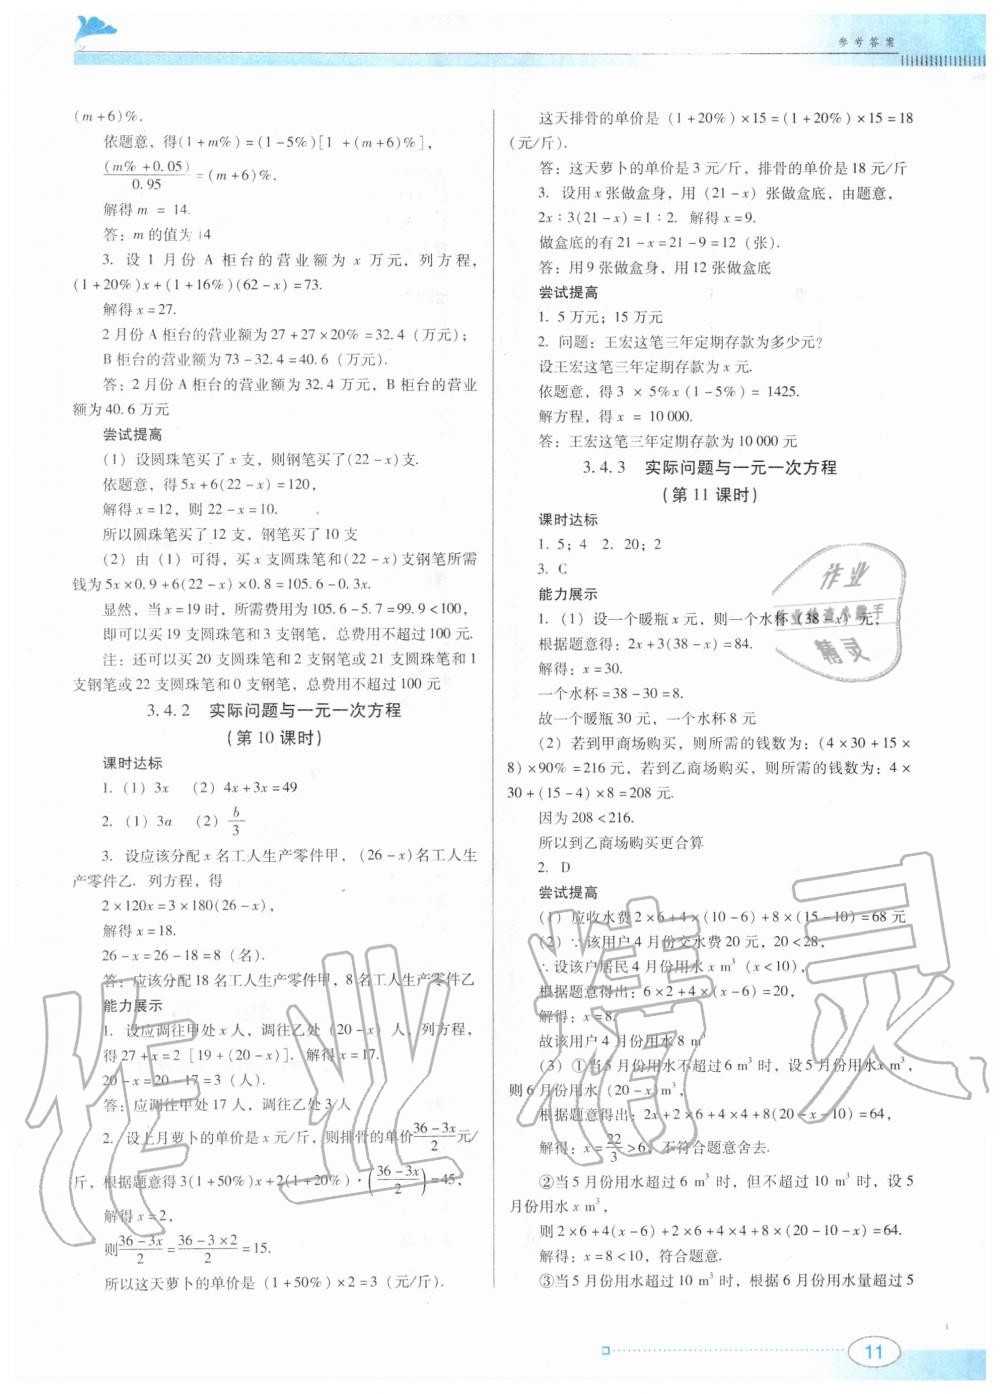 参考答案
(m+6)%.
依题意，得(1+m%)=(1-5%)[1+(m+6)%]，
(m%+0.05)/0.95=(m+6)%.
解得m = 14.
答：m的值为14
3. 设1月份A柜台的营业额为x万元，列方程，
(1+20%)x+(1+16%)(62-x)=73.
解得x=27.
2月份A柜台的营业额为27+27×20%=32.4（万元）；
B柜台的营业额为73-32.4=40.6（万元）.
答：2月份A柜台的营业额为32.4万元，B柜台的营业
额为40.6万元
尝试提高
（1）设圆珠笔买了x支，则钢笔买了(22-x)支.
依题意，得5x+6(22-x)=120，
解得x=12，则22-x=10.
所以圆珠笔买了12支，钢笔买了10支
（2）由（1）可得，买x支圆珠笔和(22-x)支钢笔所需
钱为5x×0.9+6(22-x)×0.8=105.6-0.3x.
显然，当x=19时，所需费用为105.6-5.7=99.9<100，
即可以买19支圆珠笔和3支钢笔，总费用不超过100元.
注：还可以买20支圆珠笔和2支钢笔或21支圆珠笔和1
支钢笔或22支圆珠笔和0支钢笔，总费用不超过100元
3.4.2 实际问题与一元一次方程
（第10课时）
课时达标
1.（1）3x （2）4x+3x=49
2.（1）3a （2）b/3
3. 设应该分配x名工人生产零件甲，(26-x)名工人生
产零件乙. 列方程，得
2×120x=3×180(26-x)，
解得x=18.
26-x=26-18=8（名）.
答：应该分配18名工人生产零件甲，8名工人生产零件乙
能力展示
1. 设应调往甲处x人，调往乙处（20-x）人，列方程，
得27+x=2［19+(20-x)］. 解得x=17.
20-x=20-17=3（人）.
答：应调往甲处17人，调往乙处3人
2. 设上月萝卜的单价是x元/斤，则排骨的单价(36-3x)/2元/
斤，根据题意得3(1+50%)x+2(1+20%)·((36-3x)/2)=45，
解得x=2，
则(36-3x)/2=(36-3×2)/2=15.
所以这天萝卜的单价是（1+50%）×2=3（元/斤）.
这天排骨的单价是（1+20%）×15=（1+20%）×15=18
(元/斤).
答：这天萝卜的单价是3元/斤，排骨的单价是18元/斤
3. 设用x张做盒身，用（21-x）张做盒底，由题意，
2x∶3(21-x)=1∶2. 解得x=9.
做盒底的有21-x=21-9=12（张）.
答：用9张做盒身，用12张做盒底
尝试提高
1. 5万元；15万元
2. 问题：王宏这笔三年定期存款为多少元？
设王宏这笔三年定期存款为x元.
依题意，得3 × 5%x（1-5%）= 1425.
解方程，得x = 10 000.
答：王宏这笔三年定期存款为10 000元
3.4.3 实际问题与一元一次方程
（第11课时）
课时达标
1. 5；4 2. 20；2
3. C
能力展示
1.（1）设一个暖瓶x元，则一个水杯（38-x）元，
根据题意得：2x+3(38-x)=84.
解得：x=30.
一个水杯=38-30=8.
故一个暖瓶30元，一个水杯8元
（2）若到甲商场购买，则所需的钱数为：（4×30+15×
8）×90%=216元，若到乙商场购买，则所需的钱数为：4×
30+(15-4)×8=208元.
因为208<216.
所以到乙商场购买更合算
2. D
尝试提高
（1）应收水费2×6+4×(10-6)+8×(15-10)=68元
（2）∵该用户4月份交水费20元，20<28，
∴设该户居民4月份用水x m³（x<10），
根据题意得出：6×2+4×(x-6)=20，
解得：x=8.
故该用户4月份用水8 m³
（3）①当5月份用水不超过6 m³时，设5月份用水x m³，
则6月份用水（20-x）m³，
根据题意得出：2x+2×6+4×4+8(20-x-10)=64，
解得：x=22/3>6，不符合题意舍去.
②当5月份用水超过6 m³时，但不超过10 m³时，设5
月份用水x m³，
则2×6+4(x-6)+2×6+4×4+8×(20-10-x)=64.
解得：x=8<10，符合题意.
③当5月份用水超过10 m³时，根据6月份用水量超过5
11
作业
作业检查小助手
精灵
作业精灵